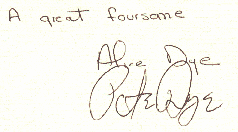 A great foursome
Alice Dye
Pete Dye